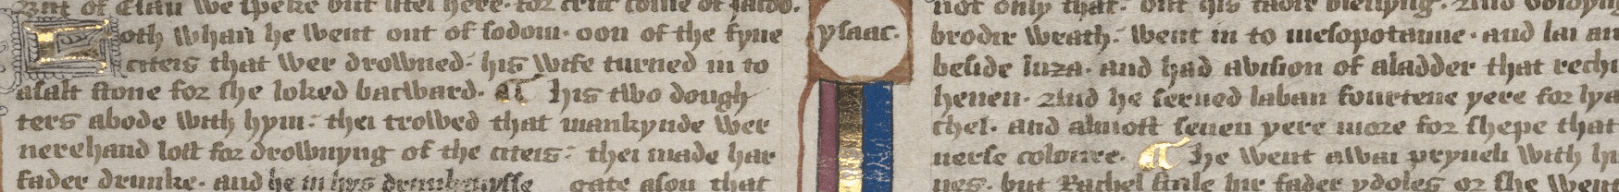 But of Esau we speke but litel here. for crist come of Jacob.
Loth whan he went out of sodom. oon of the fyue
citeis that wer drowned. his wife turned in to
a salt stone for she loked bacward. ¶ his two dough
ters abode with hym. thei trowed that mankynde wer
nerehand lost for drownyng of the citeis. thei made har
fader drunke. and he in hys drunkenysse gate a son that
ysaac.
not only that. but his fadir blessyng. And
brodir wrath. went in to mesopotamie. and lai an
beside luza. and had avision of aladder that rechi
heuen. And he serued laban fourtene yere for lya
chel. and almost seuen yere more for shepe that
uerse coloure. ¶ he went awai pryueli with hi
ues. but Rachel stale hir fader ydoles. or she wen